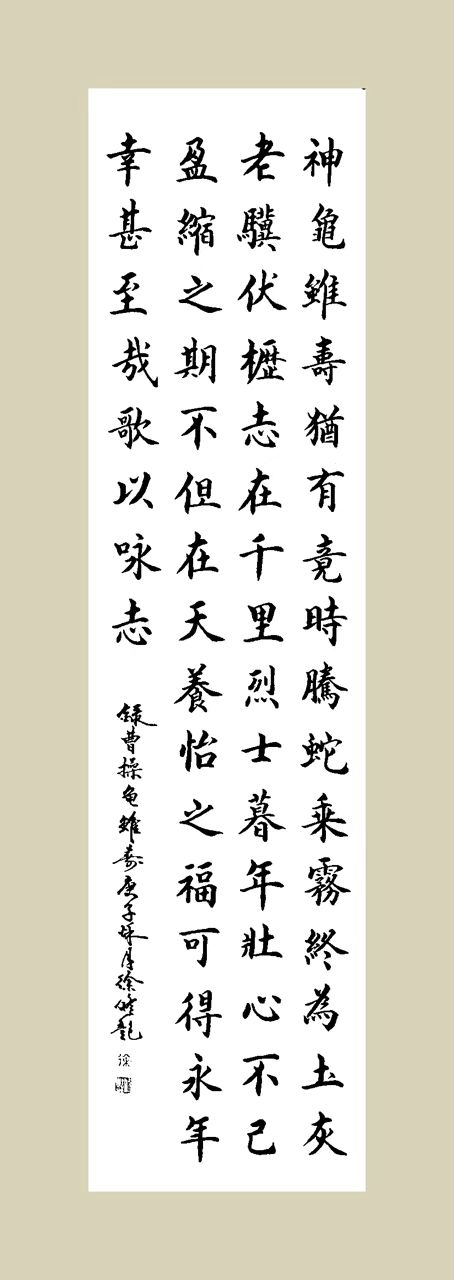 神龜雖壽猶有竟時騰蛇乘霧終為土灰
老驥伏櫪志在千里烈士暮年壯心不已
盈縮之期不但在天養怡之福可得永年
幸甚至哉歌以咏志
錄曹操龜雖壽庚子秋月徐
徐